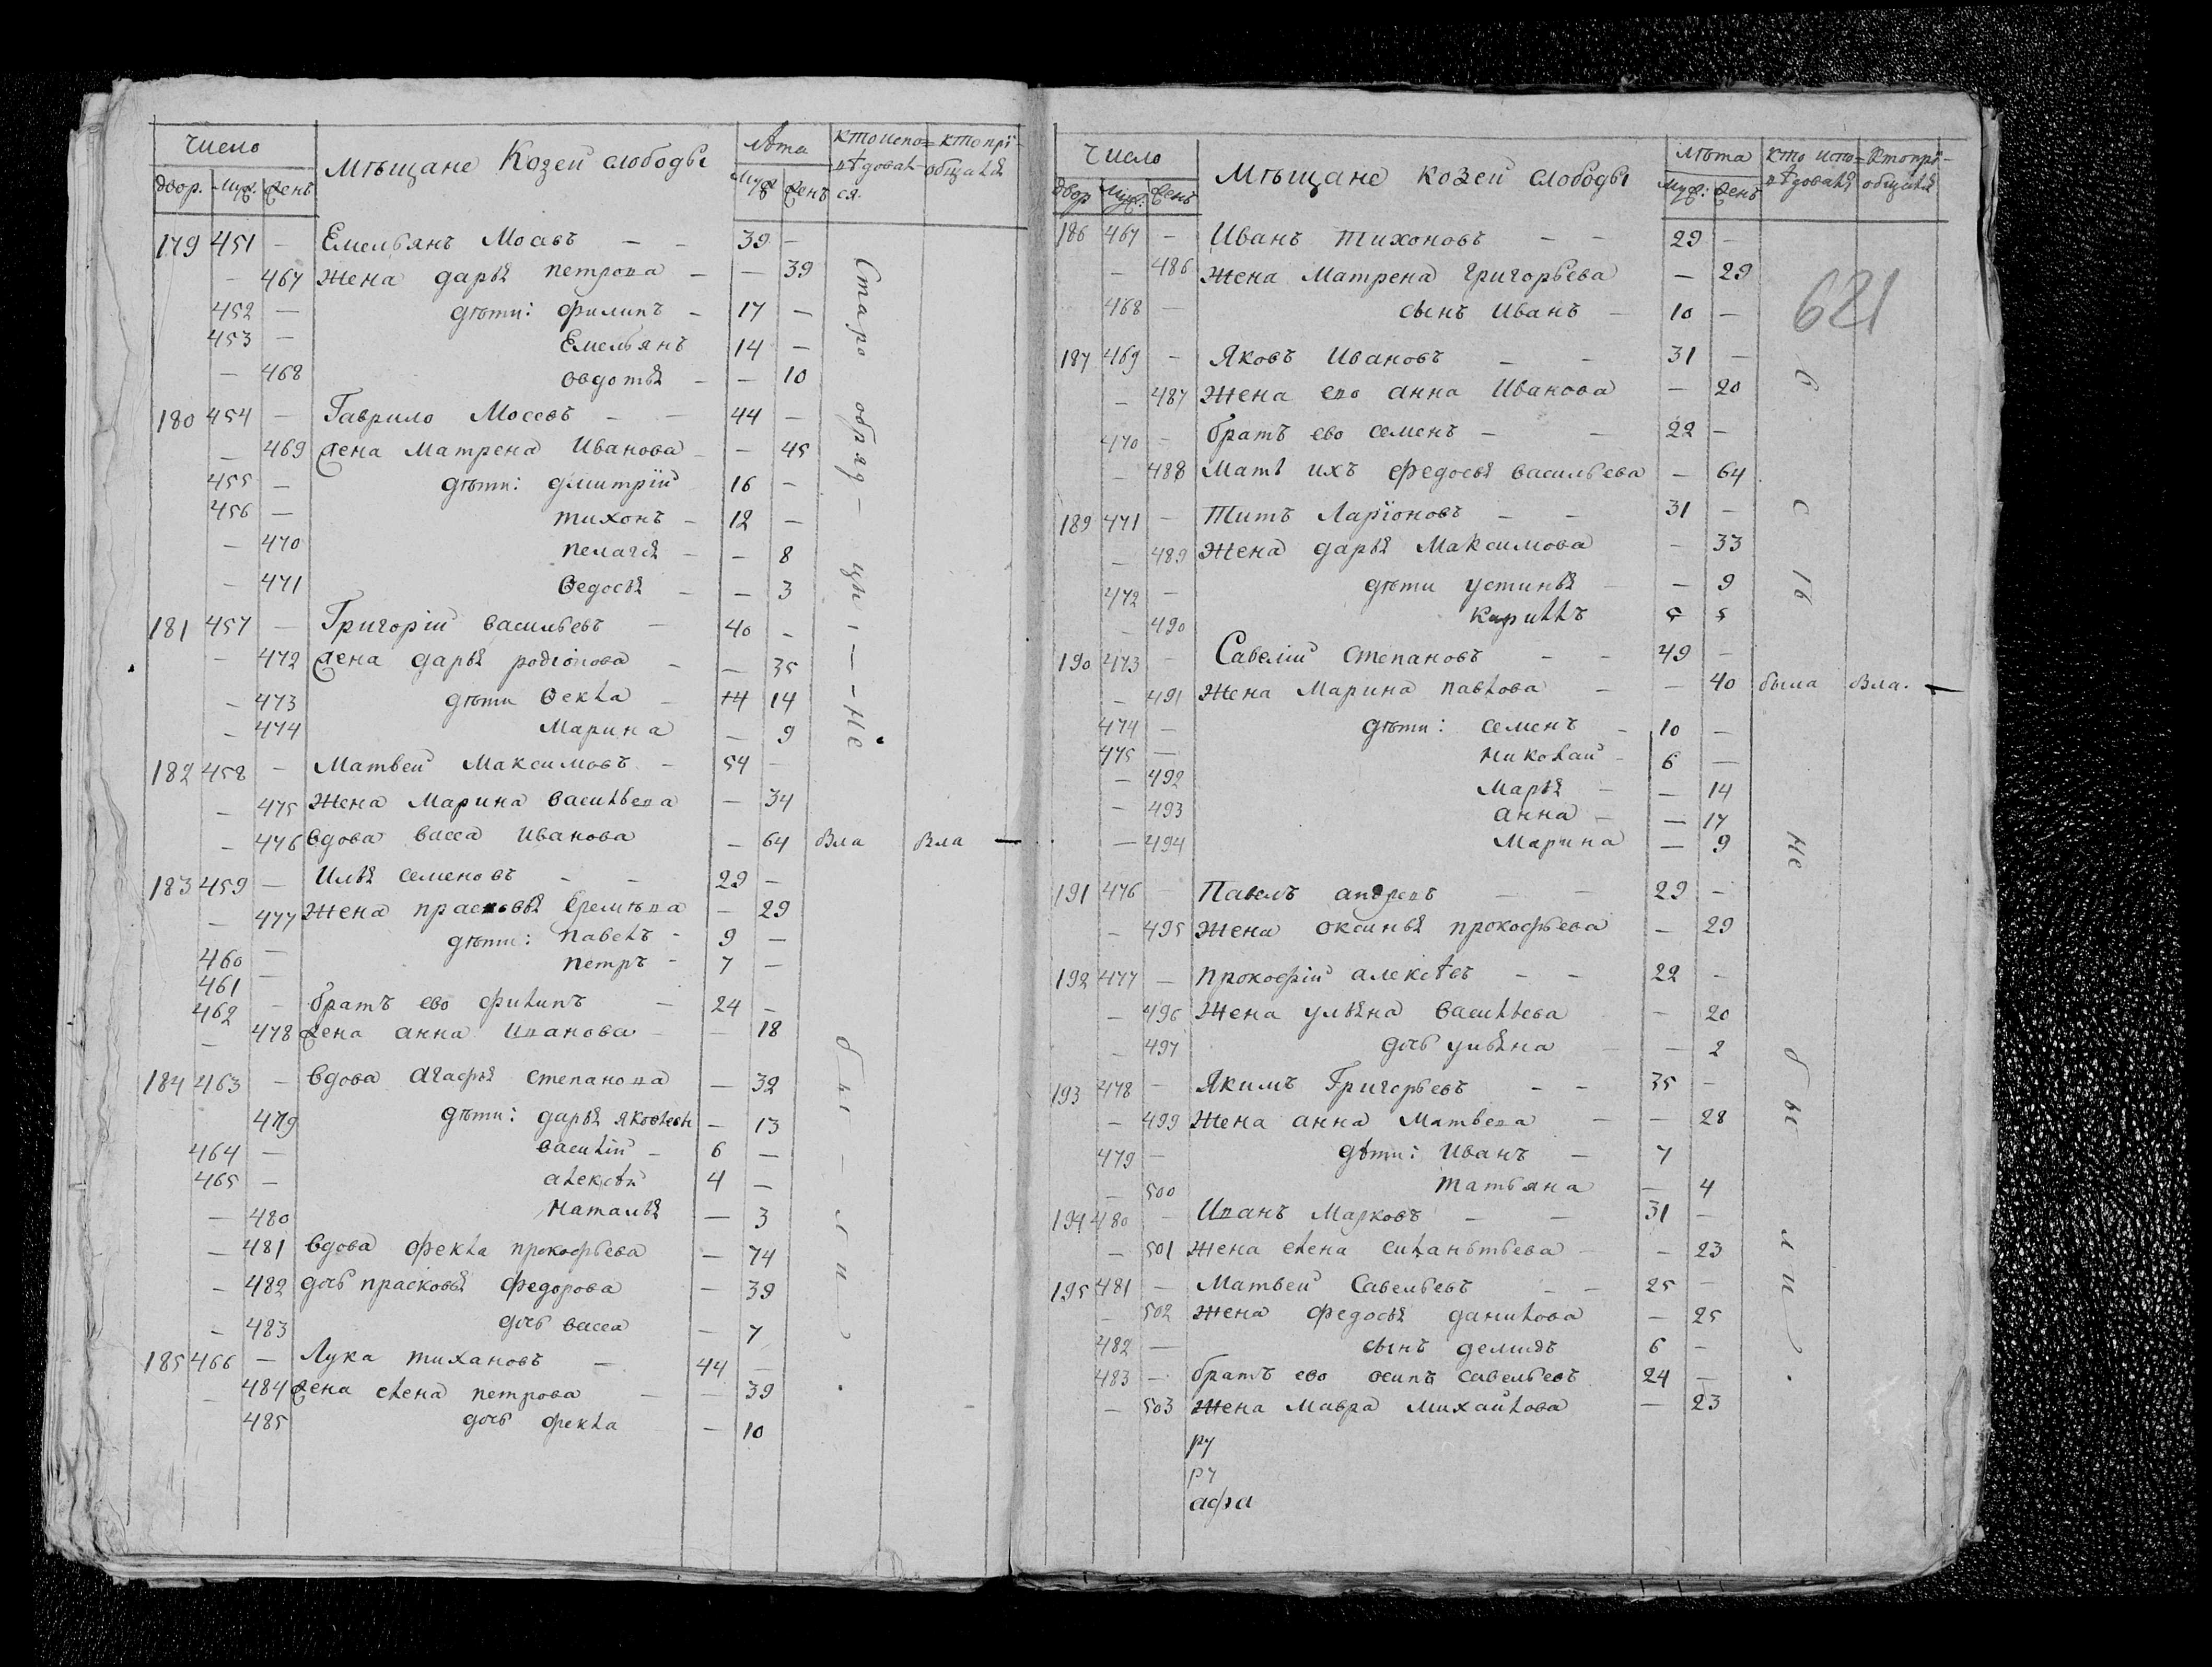 Число Мѣщане Козей слободы Лѣта кто испо= кто прі-
двор. муж. женъ муж женъ вѣдовал общался
ся.
179 451 — Емельянъ Мосевъ — — 39 —
— 467 жена дарья петрова — — 39
452 — дѣти: филипъ — 17 —
453 — Емельянъ 14 —
— 468 овдотья — — 10
180 454 — Гаврило Мосевъ — — 44 —
— 469 жена матрена Иванова — — 45
455 — дѣти: дмитрій 16 —
456 — тихонъ — 12 —
— 470 пелагея — — 8
— 471 Ѳедосья — — 3
181 457 — Григорій васильевъ — 40 —
— 472 жена дарья родіонова — — 35
— 473 дѣти Ѳекла — 14 14
— 474 Марина — 9
182 458 — Матвей Максимовъ — 54 —
— 475 жена Марина васильева — 34
— 476 вдова васса Иванова — 64 Вла Вла —
183 459 — Илья семеновъ — — 29 —
— 477 жена прасковья Еремѣва — 29
460 — дѣти: павелъ — 9 —
461 — петръ — 7 —
462 — братъ ево филипъ — 24 —
— 478 жена анна Иванова — — 18
184 463 — вдова агафья степанова — 32
479 дѣти: дарья яковлевн — 13
464 — василій — 6 —
465 — алексѣй 4 —
— 480 наталья — 3
— 481 вдова фекла прокофьева — 74
— 482 дочь прасковья федорова — 39
— 483 дочь васса — 7
185 466 — Лука тихановъ — 44 —
— 484 жена елена петрова — — 39
485 дочь фекла — 10
Старо обряд — цы — — — Не были.
Число Мѣщане козей слободы лѣта кто испо= кто прі-
двор муж: женъ муж: женъ вѣдовался общался
621
186 467 — Иванъ тихоновъ — — 29 —
— 486 жена матрена григорьева — 29
468 — сынъ иванъ — 10 —
187 469 — Яковъ Ивановъ — — 31 —
— 487 жена ево анна Иванова — 20
470 — братъ ево семенъ — — 22 —
— 488 мать ихъ федосья васильева — 64
189 471 — Титъ Ларіоновъ — — 31 —
— 489 жена дарья максимова — 33
472 — дѣти устинья — — 9
— 490 кирилъ 5 5
190 473 — Савелій степановъ — — 49 —
— 491 жена марина павлова — — 40 была Вла. —
474 — дѣти: семенъ — 10 —
475 — николай — 6 —
— 492 марья — — 14
— 493 анна — — 17
— 494 марина — 9
191 476 — Павелъ андревъ — — 29 —
— 495 жена оксинья прокофьева — 29
192 477 — прокофій алексѣевъ — — 22 —
— 496 жена ульяна васильева — 20
— 497 дочь ульяна — — 2
193 478 — Якимъ Григорьевъ — — 35 —
— 499 жена анна матвева — — 28
479 — дѣти: иванъ — 7
— 500 татьяна — 4
194 480 — Иванъ марковъ — — 31 —
— 501 жена елена силантьева — — 23
195 481 — Матвей Савельевъ — — 25 —
— 502 жена федосья данилова — 25
482 — сынъ демидъ 6 —
483 — братъ ево осипъ савельевъ 24 —
— 503 жена мавра михайлова — 23
ру
ру
афа
Не были.